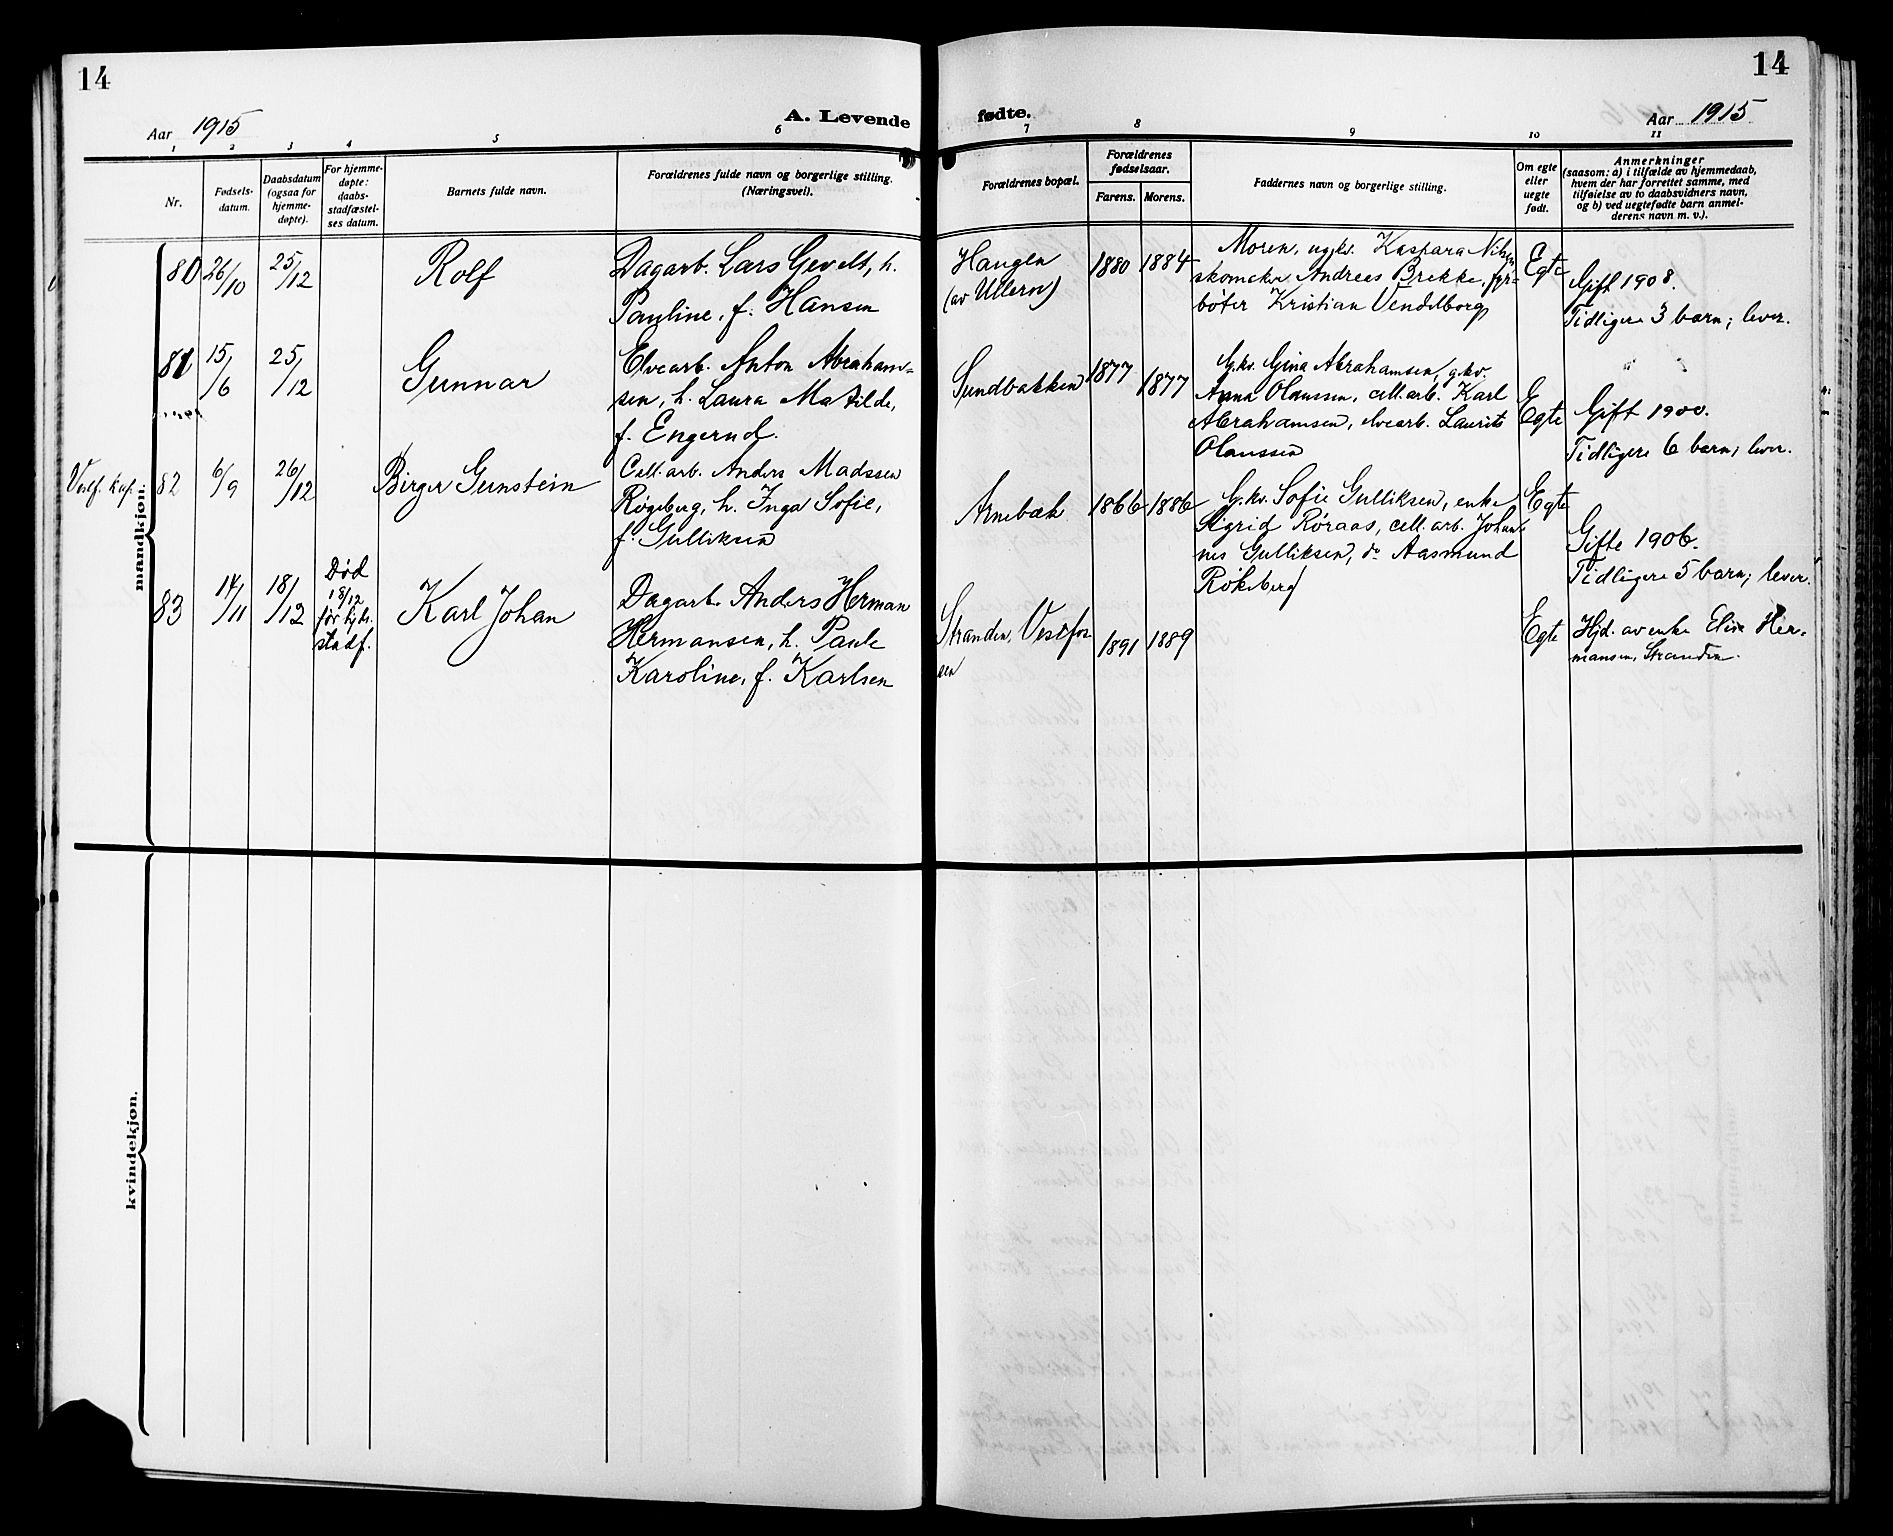 14
14
Aar 1915
A. Levende fødte.
Aar 1915
1 2 3 4 5 6 7 8 9 10 11
Nr.
Fødsels-
datum.
Daabsdatum
(ogsaa for
hjemme-
døpte).
For hjemme-
døpte:
daabs-
stadfæstel-
ses datum.
Barnets fulde navn.
Forældrenes fulde navn og borgerlige stilling.
(Næringsvei).
Forældrenes bopæl.
Forældrenes
fødselsaar.
Farens. Morens.
Faddernes navn og borgerlige stilling.
Om egte
eller
uegte
født.
Anmerkninger
(saasom: a) i tilfælde av hjemmedaab,
hvem der har forrettet samme, med
tilføielse av to daabsvidners navn,
og b) ved uegtefødte barn anmel-
derens navn m. v.).
mandkjøn.
80
26/10
25/12
Rolf
Dagarb. Lars Gevelt, h.
Pauline, f. Hansen
Haugen
(av Ullern)
1880 1884
Moren, ugkv. Kaspara Nilsen
skomaker Andreas Brekke, fyr-
bøter Kristian Vendelborg
Egte
Gift 1908.
Tidligere 3 barn; lever.
81
15/6
25/12
Gunnar
Elvearb. Anton Abraham-
sen, h. Laura Matilde,
f. Engerud.
Sundbakken
1877 1877
G.kv. Gina Abrahamsen, g.kv.
Anna Olaussen, cell.arb. Karl
Abrahamsen, elvearb. Laurits
Olaussen
Egte
Gift 1900.
Tidligere 6 barn; lever.
Vestf. kap.
82
6/9
26/12
Birger Gunstein
Cell. arb. Anders Madssen
Røgeberg, h. Inga Sofie,
f. Gulliksen
Arnebæk
1866 1886
G.kv. Sofie Gulliksen, enke
Sigrid Røraas, cell. arb. Johan-
nes Gulliksen, do Aasmund
Røkeberg
Egte
Gifte 1906.
Tidligere 5 barn; lever.
83
14/11
18/12
Død
18/12
før kirk.
stadf.
Karl Johan
Dagarb. Anders Herman
Hermansen, h. Paula
Karoline, f. Karlsen
Stranden, Vestfos-
sen
1891 1889
Egte
Hjd. av enke Elise Her-
mansen, Stranden.
kvindekjøn.